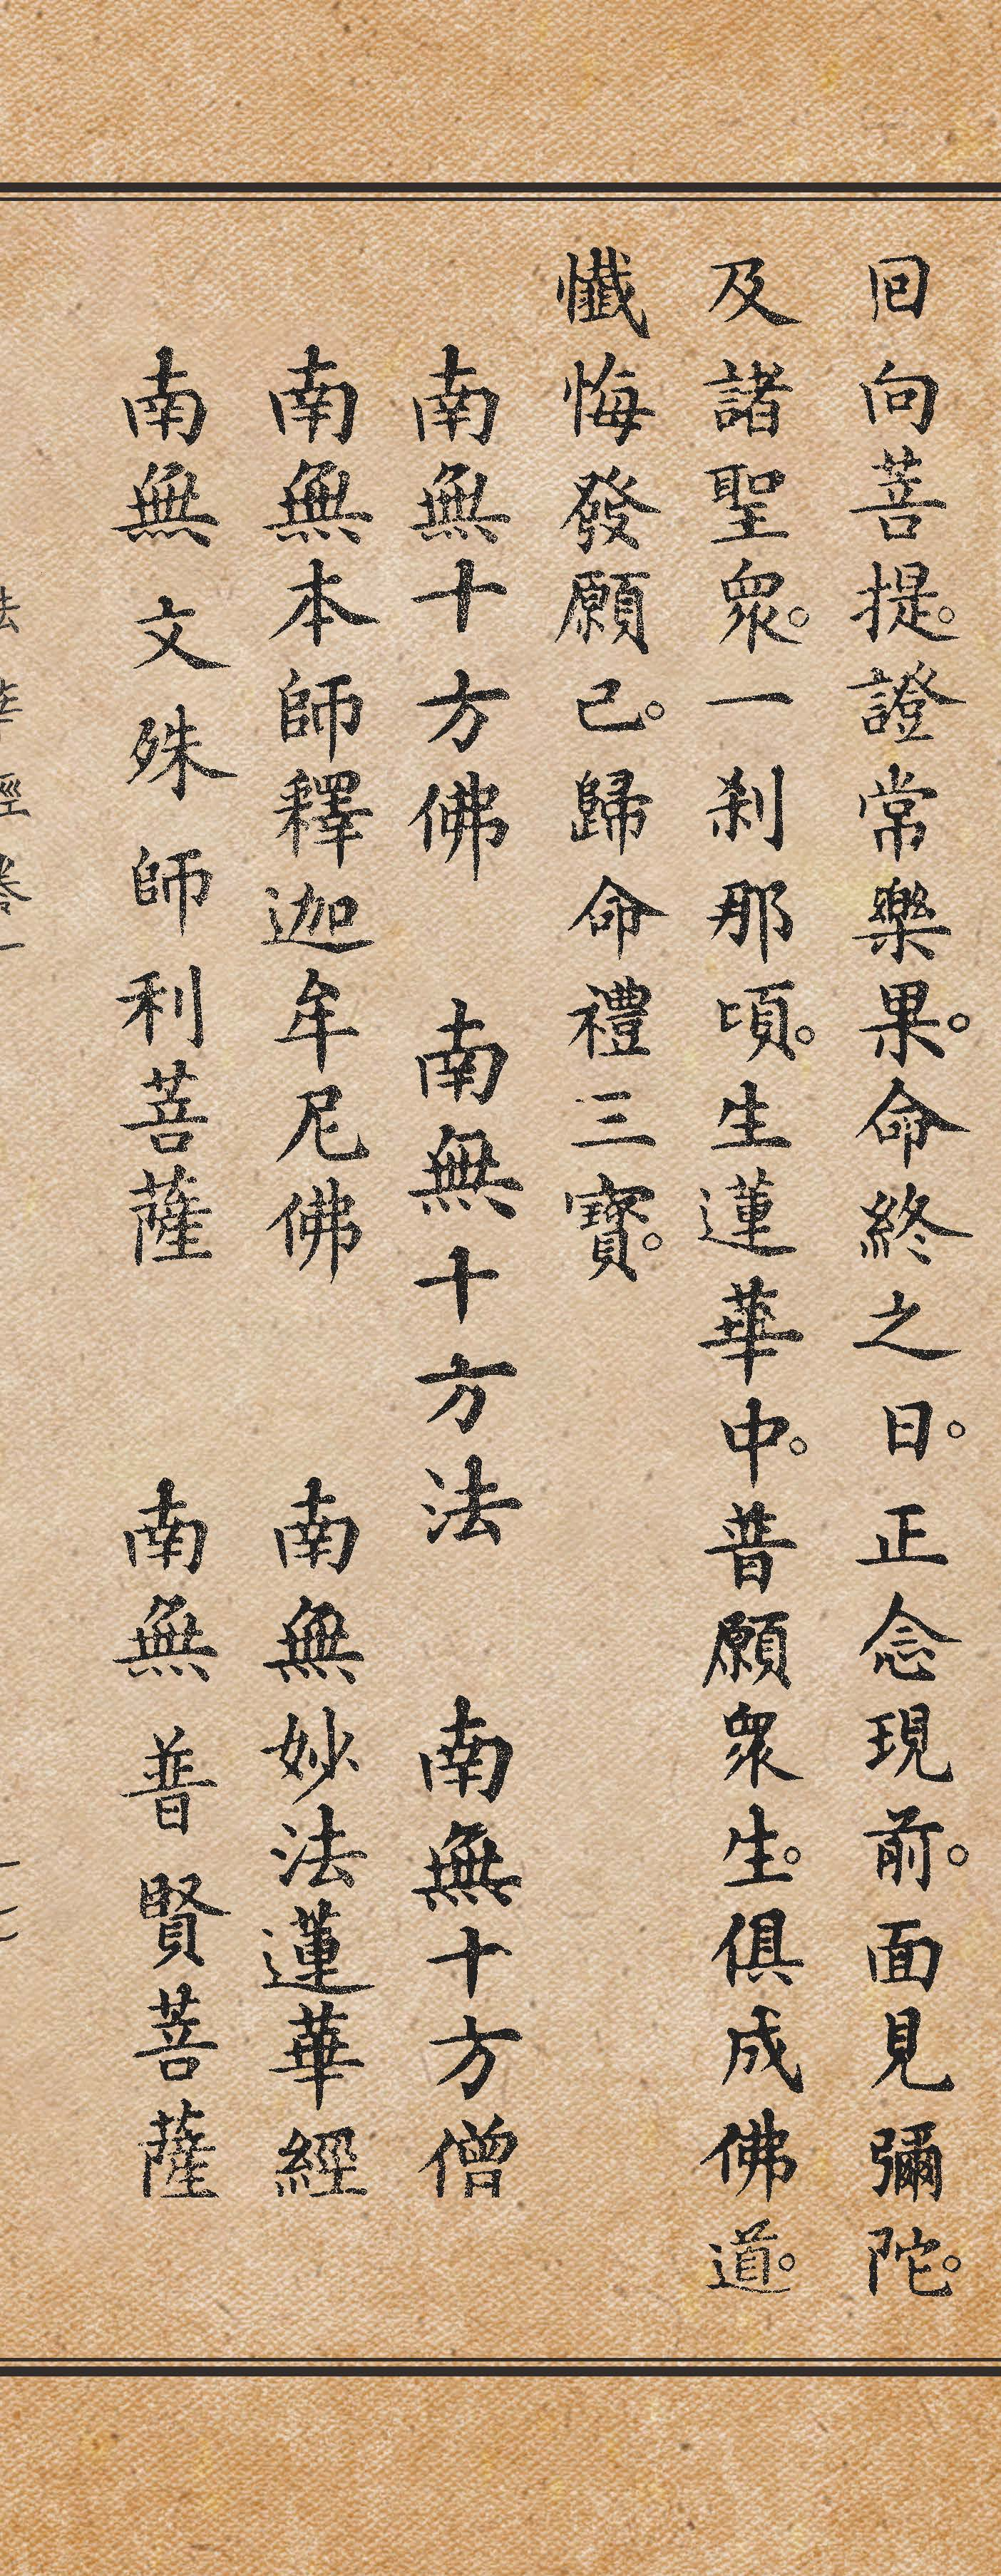 回向菩提。證常樂果。命終之日。正念現前。面見彌陀。
及諸聖眾。一剎那頃。生蓮華中。普願眾生。俱成佛道。
懺悔發願已。歸命禮三寶。
南無十方佛 南無十方法 南無十方僧
南無本師釋迦牟尼佛 南無妙法蓮華經
南無文殊師利菩薩 南無普賢菩薩